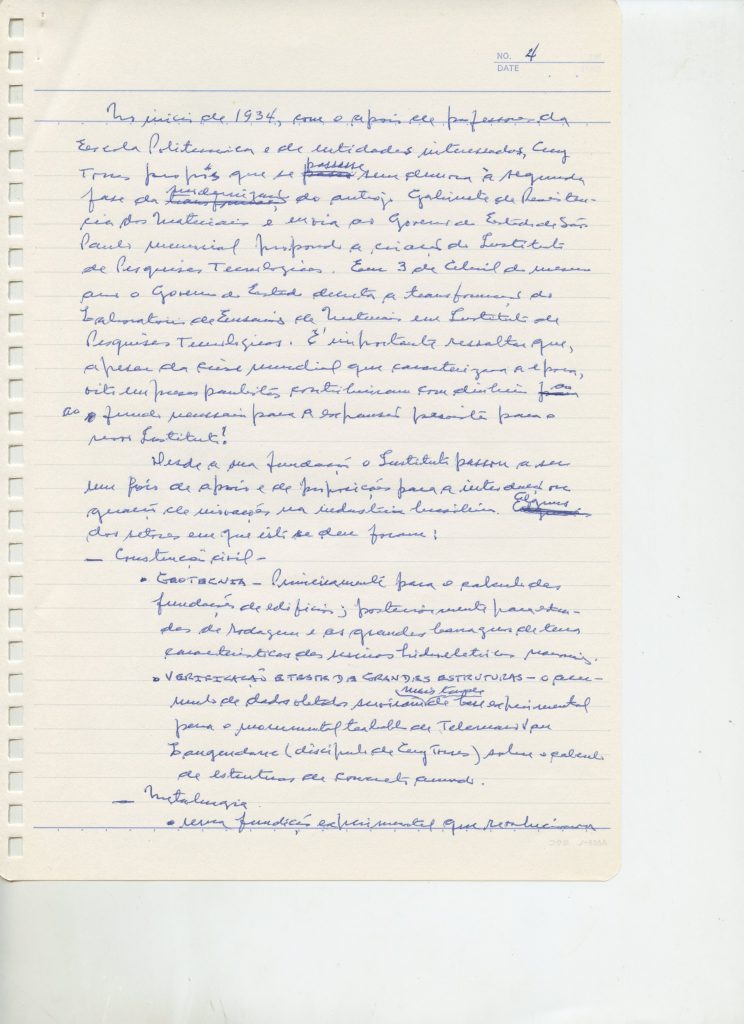 NO. 4
DATE
No inicio de 1934, com o apoio de professores da
Escola Politecnica e de entidades interessadas, Ary
Torres propôs que se passasse sem demora à segunda
fase da modernização do antigo Gabinete de Resisten-
cia dos Materiais e envia ao Governo do Estado de São
Paulo memorial propondo a criação do Instituto
de Pesquisas Tecnologicas. Em 3 de Abril do mesmo
ano o Governo do Estado decreta a transformação do
Laboratorio de Ensaios de Materiais em Instituto de
Pesquisas Tecnologicas. É importante ressaltar que,
apesar da crise mundial que caracterizava a época,
oito empresas paulistas contribuiram com dinheiro
ao fundo necessario para a expansão prevista para o
novo Instituto!
Desde a sua fundação o Instituto passou a ser
um polo de apoio e de proposição para a introdução ou
geração de inovações na industria brasileira. Alguns
dos setores em que isto se deu foram:
— Construção civil –
• GEOTECNIA – Primeiramente para o calculo das
fundações de edificios; posteriormente para estra-
das de rodagem e as grandes barragens de terra
caracteristicas das usinas hidroeletricas nacionais.
• VERIFICAÇÃO E TESTE DE GRANDES ESTRUTURAS – o acu-
mulo de dados obtidos serviram mais tarde de base experimental
para o monumental trabalho de Telemaco Van
Langendonck (discipulo de Ary Torres) sobre o calculo
de estruturas de concreto armado.
— Metalurgia
• uma fundição experimental que revolucionou